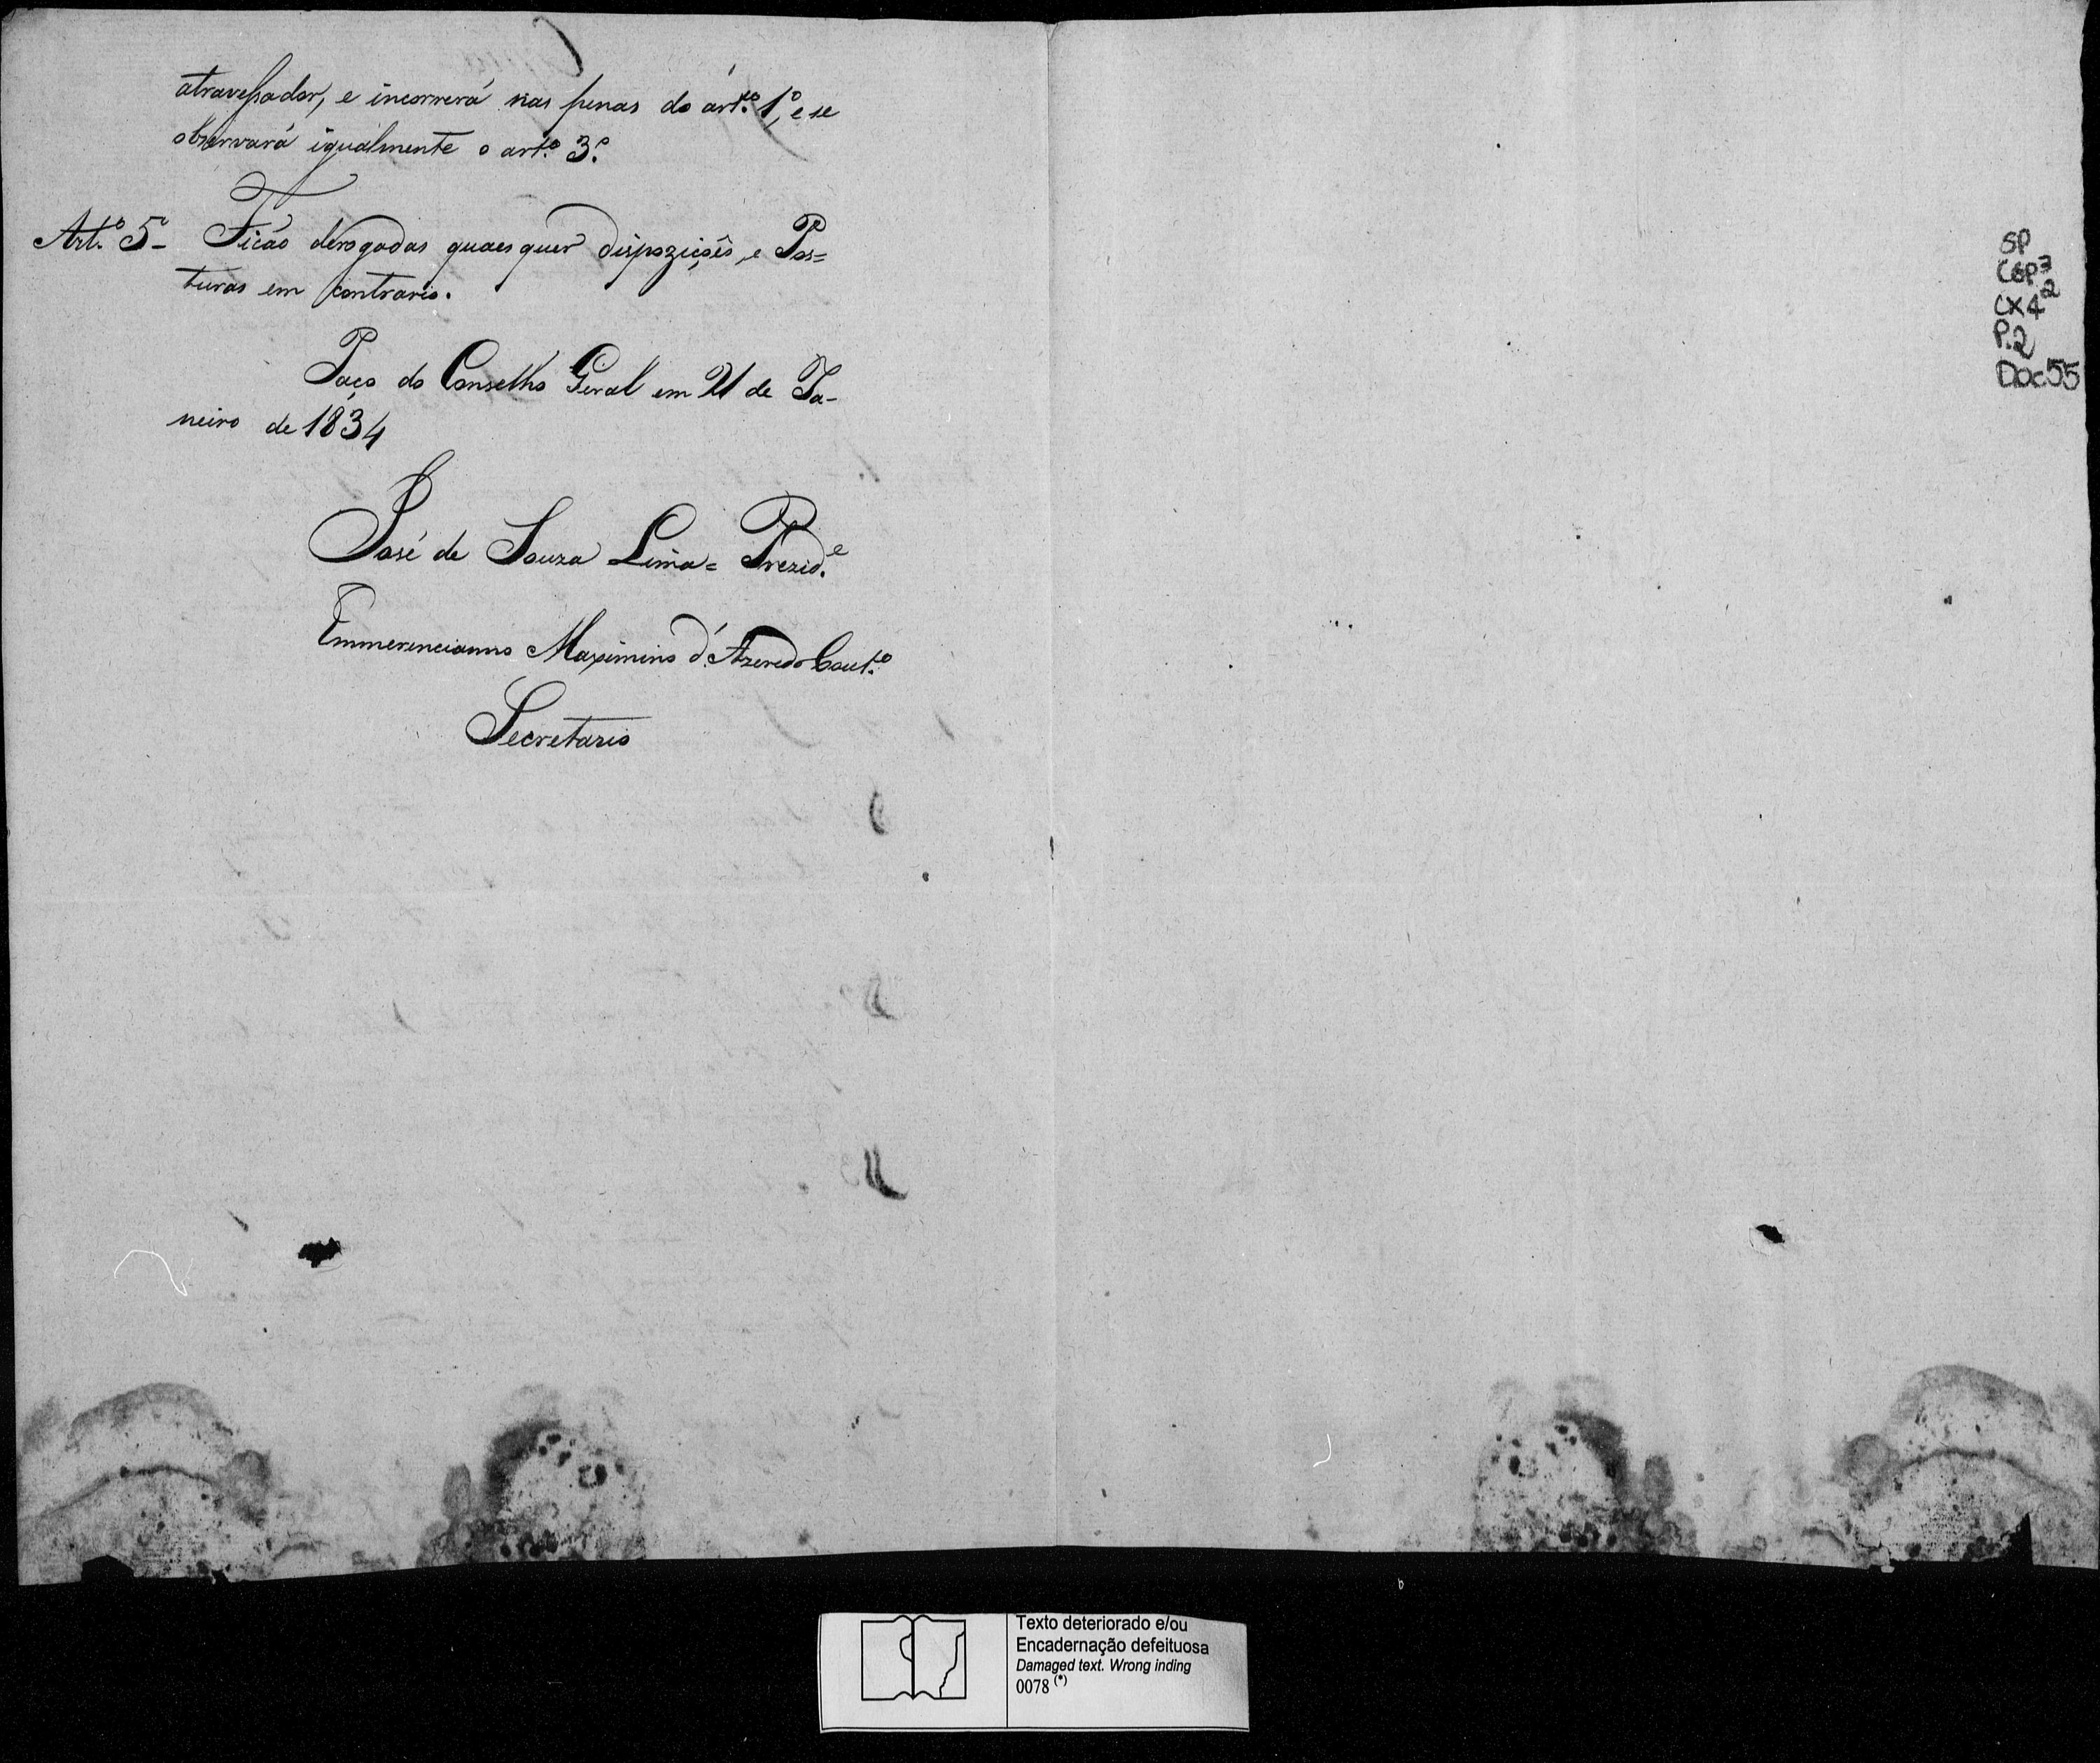 atravessador, e incorrerá nas penas do art.º 1º, e se
observará igualmente o art.º 3.º
Art.º 5º Ficão derogadas quaesquer dispozições, e Pos=
turas em contrario.
Paço do Conselho Geral em 21 de Ja-
neiro de 1834
José de Souza Lima = Prezid.e
Emmerencianno Maximino d'Azeredo Cout.º
Secretario
SP
CGP3
CX42
P.2
Doc55
Texto deteriorado e/ou
Encadernação defeituosa
Damaged text. Wrong inding
0078 (*)